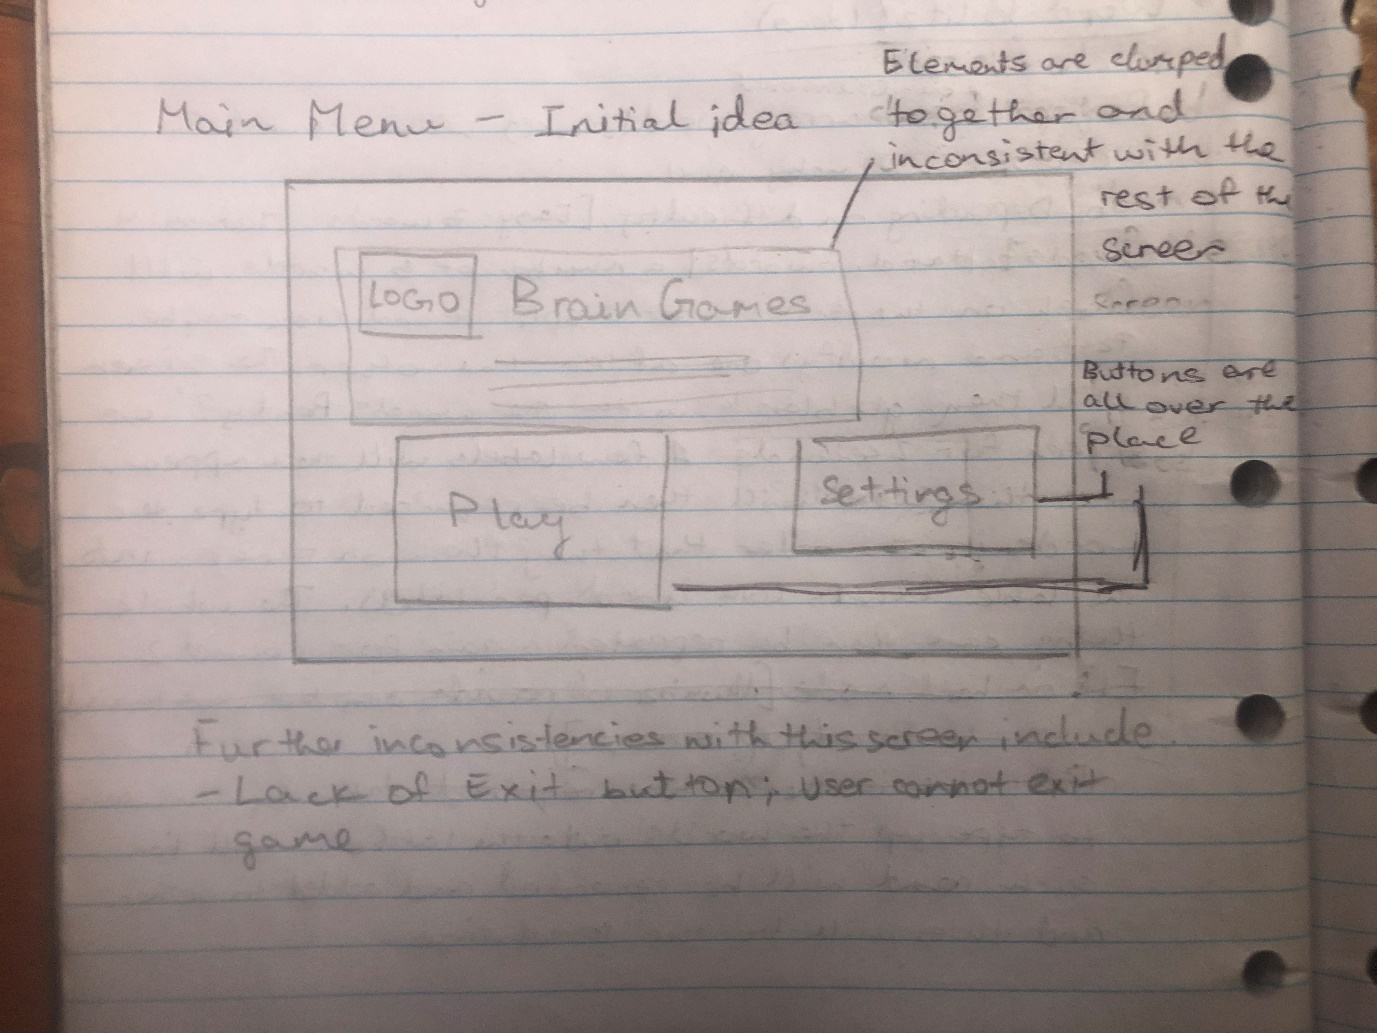 Main Menu - Initial idea
Elements are clumped
together and
inconsistent with the
rest of the
screen
LOGO
Brain Games
Buttons are
all over the
place
Play
Settings
Further inconsistencies with this screen include
- Lack of Exit button; user cannot exit
game